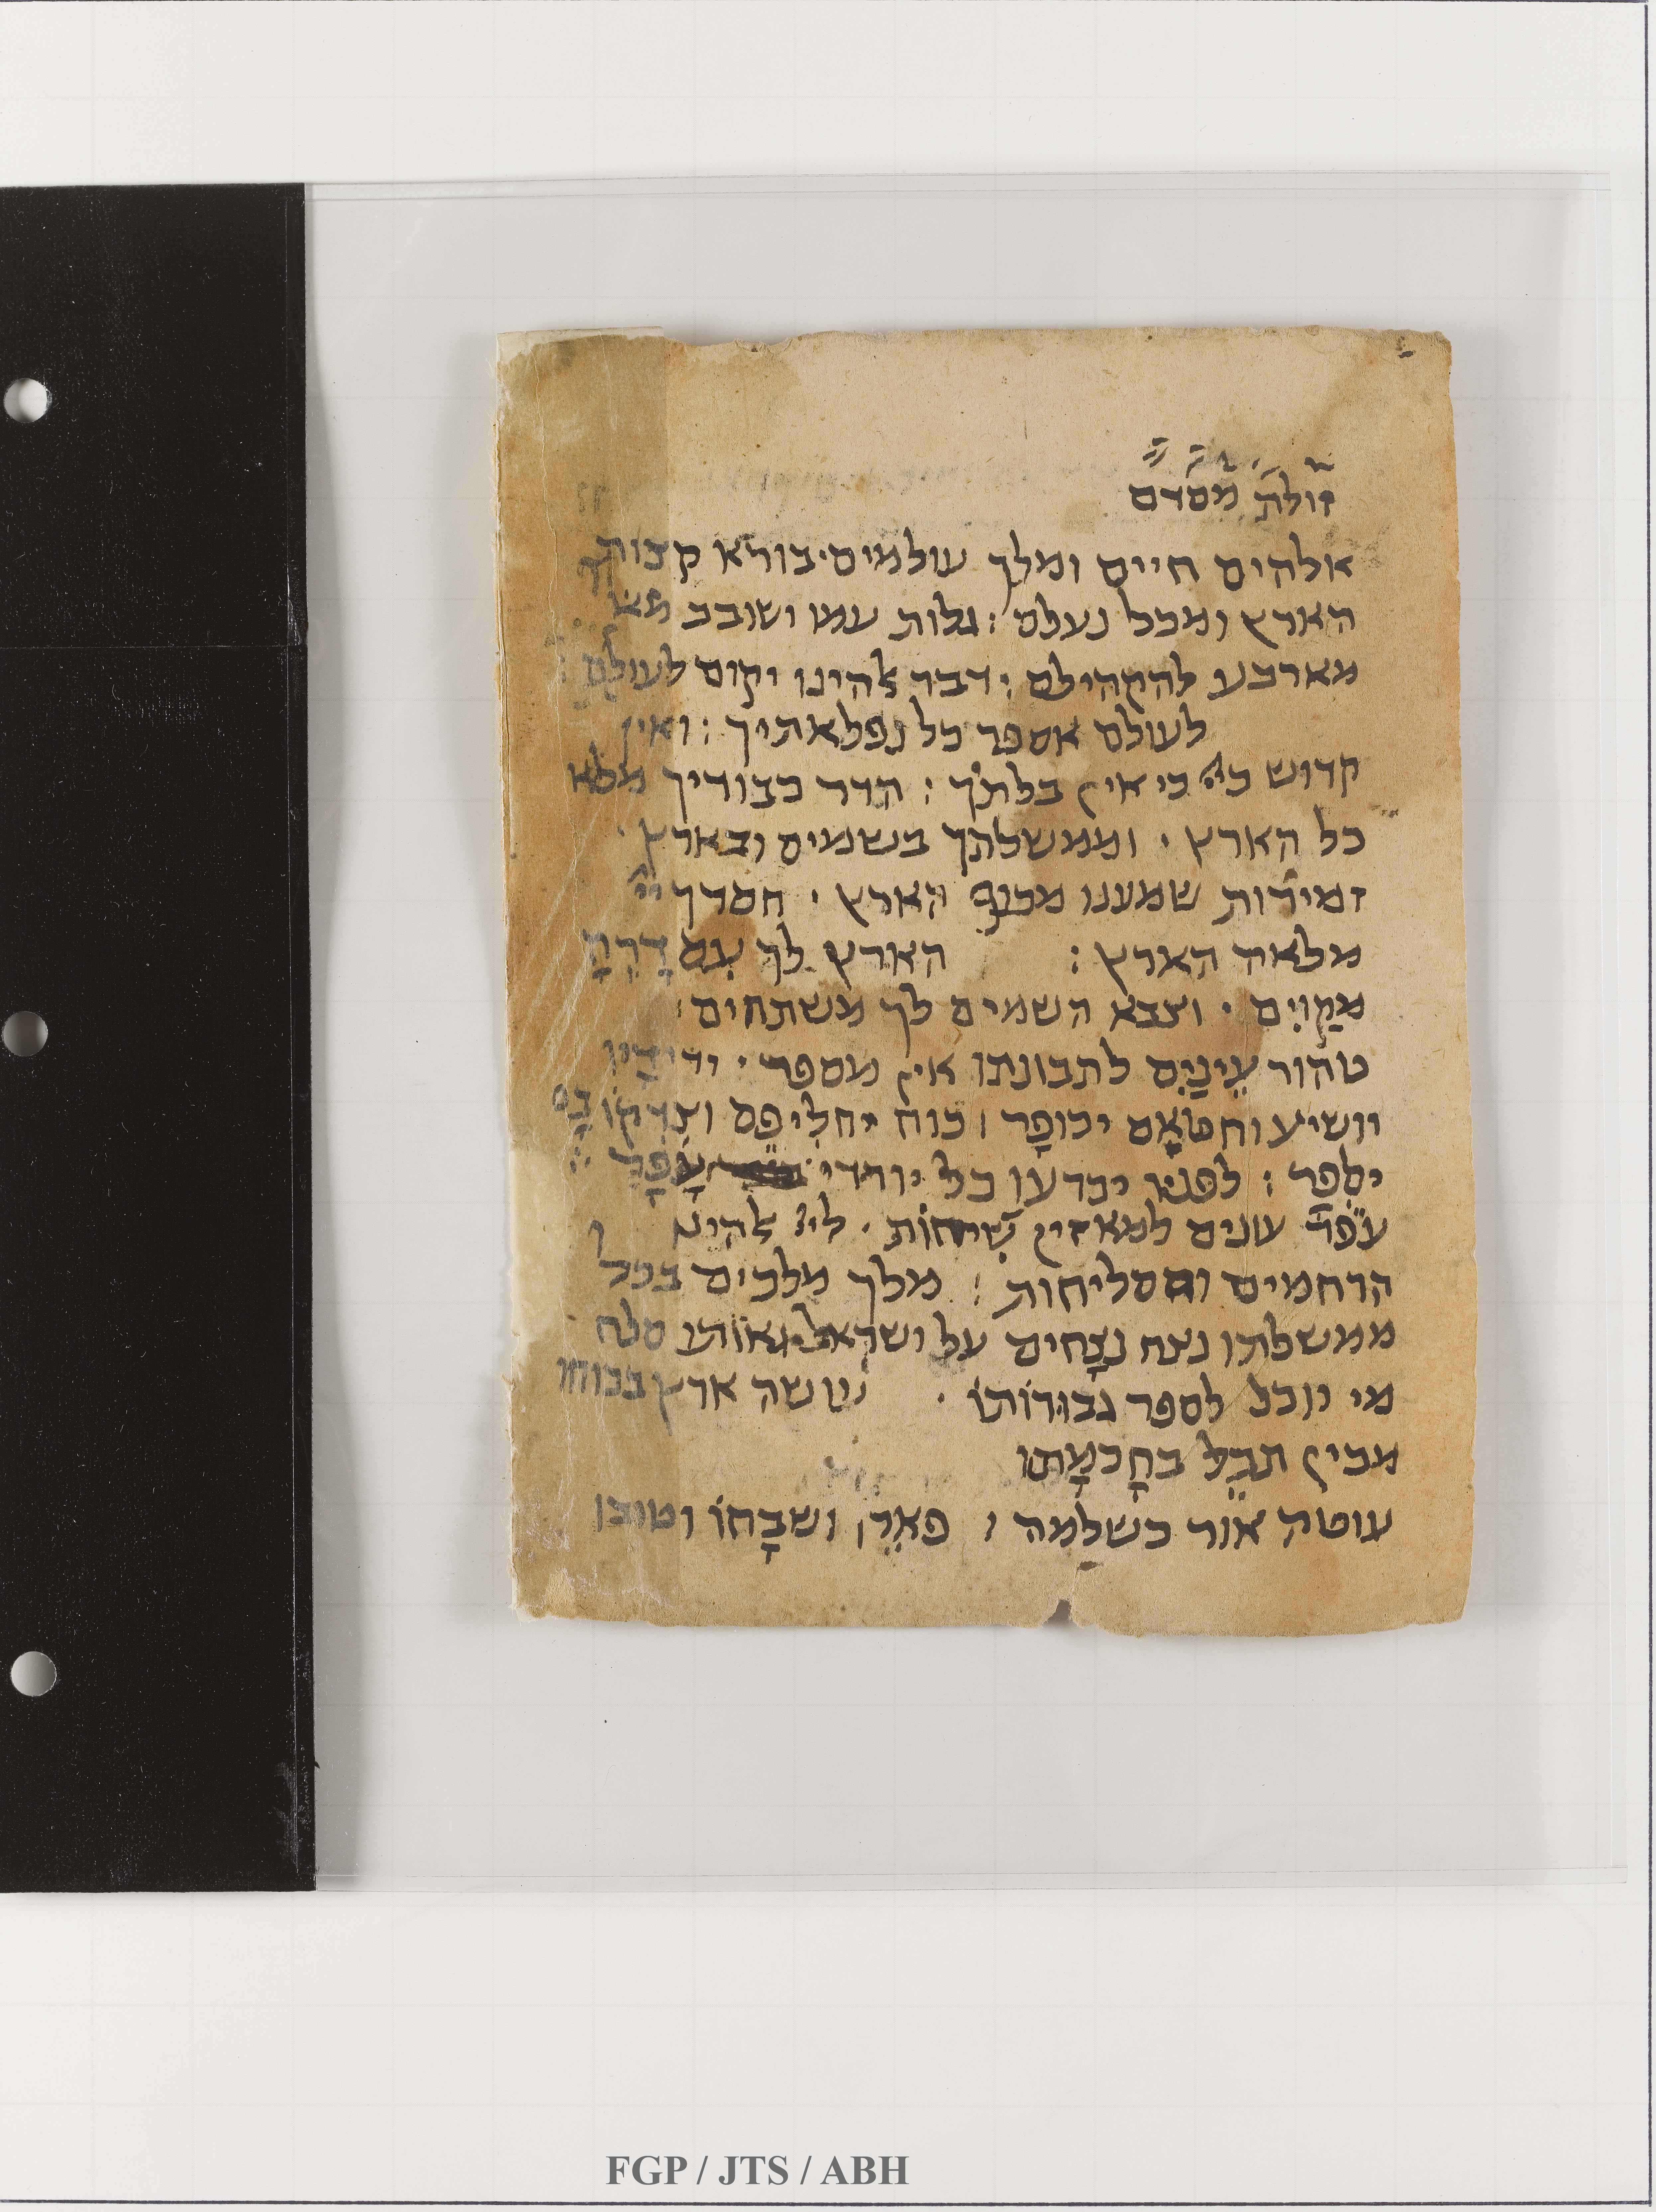 זולת מסדם
אולהים חיים ומלך עולמים · בורא קצות
הארץ ומכל נעלם : גלות עמו ישובב
מארבע להקהילם : ודבר אלהינו יקום לעולם :
לעולם אספר כל נפלאתיך : ואין
קדוש כיי כי אין בלתך : הדר כבודיך מלא
כל הארץ · וממשלתך בשמים ובארץ ·
זמירות שמענו מכנף הארץ · חסדך ייי
מלאה הארץ : הארץ לך עִם דָרֶהָ
מקַוִים · וצבא השמים לך משתחים :
טהור עֵינַיִם לתבונתו אין מספר · ידידָיו
יושיע וחטאָם יכופָר : כוח יחליפם וצדקו בָם
יסֻפר : לפניו יכרעו כל יורדי עָפָר :
עפר עונים למאזין שִׂיחוֹת · לייי אלהינו
הרחמים והסליחות : מלך מלכים בכל
ממשלתו נצח נצָחים על ישראל גאותו סלה
מי יוכל לספר גבורותו · עשה ארץ בכוחו
מכין תבֵל בחָכמָתו
עוטה אור כשלמה : פאֵרו ושבָחו וטובו
FGP / JTS / ABH